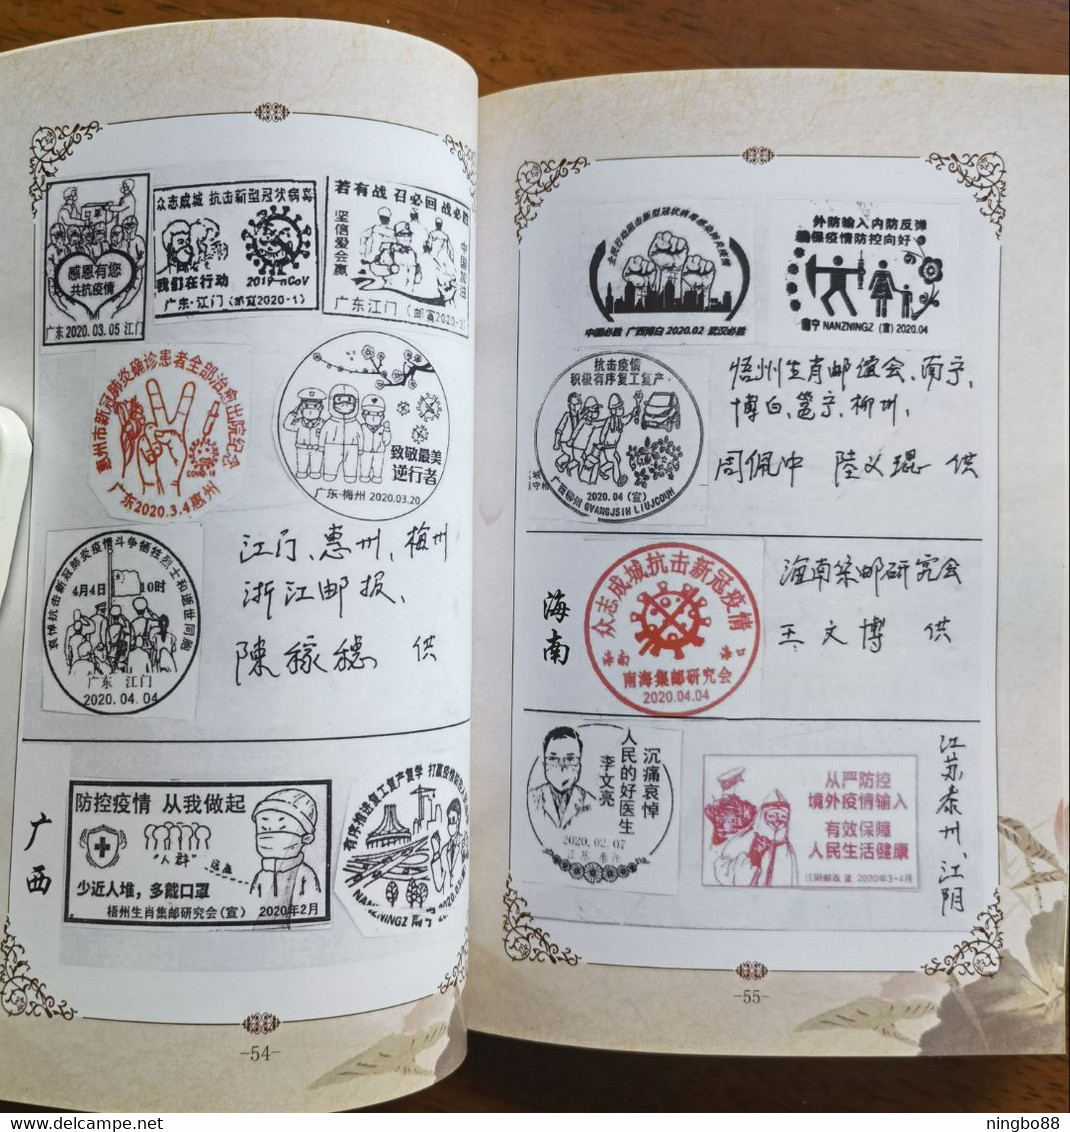 感恩有您
共抗疫情
广东 2020.03.05 江门
众志成城 抗击新型冠状病毒
我们在行动
2019-nCoV
广东·江门(邮宣2020-1)
若有战 召必回 战必胜
坚信爱会赢
中国加油
广东江门(邮宣2020-2)
惠州市新冠肺炎确诊患者全部治愈出院纪念
COVID-19
广东2020.3.4惠州
致敬最美
逆行者
广东·梅州 2020.03.20
哀悼抗击新冠肺炎疫情斗争牺牲烈士和逝世同胞
4月4日 10时
广东 江门
2020.04.04
江门、惠州、梅州
浙江邮报、
陳稼穗 供
广西
防控疫情 从我做起
"人群"
远点
少近人堆，多戴口罩
梧州生肖集邮研究会(宣) 2020年2月
有序推进复工复产复学 打赢疫情防控
NANZNINGZ 南宁
-54-
全民行动阻击新型冠状病毒感染肺炎疫情
中国必胜 广西博白 2020.02 武汉必胜
外防输入内防反弹
确保疫情防控向好
NANZNINGZ (宣) 2020.04
抗击疫情
积极有序复工复产
2020.04 (宣)
广西柳州 GVANGJSIH LIUJCOUH
梧州生肖邮谊会、南宁、
博白、邕宁、柳州、
周佩冲 陸义琨 供
海南
众志成城抗击新冠疫情
海南 海口
南海集邮研究会
2020.04.04
海南集邮研究会
王文博 供
沉痛哀悼
人民的好医生
李文亮
2020.02.07
江苏 泰兴
从严防控
境外疫情输入
有效保障
人民生活健康
江阴邮政宣 2020年3-4月
江苏泰州、江阴
-55-
delcampe.net
ningbo88